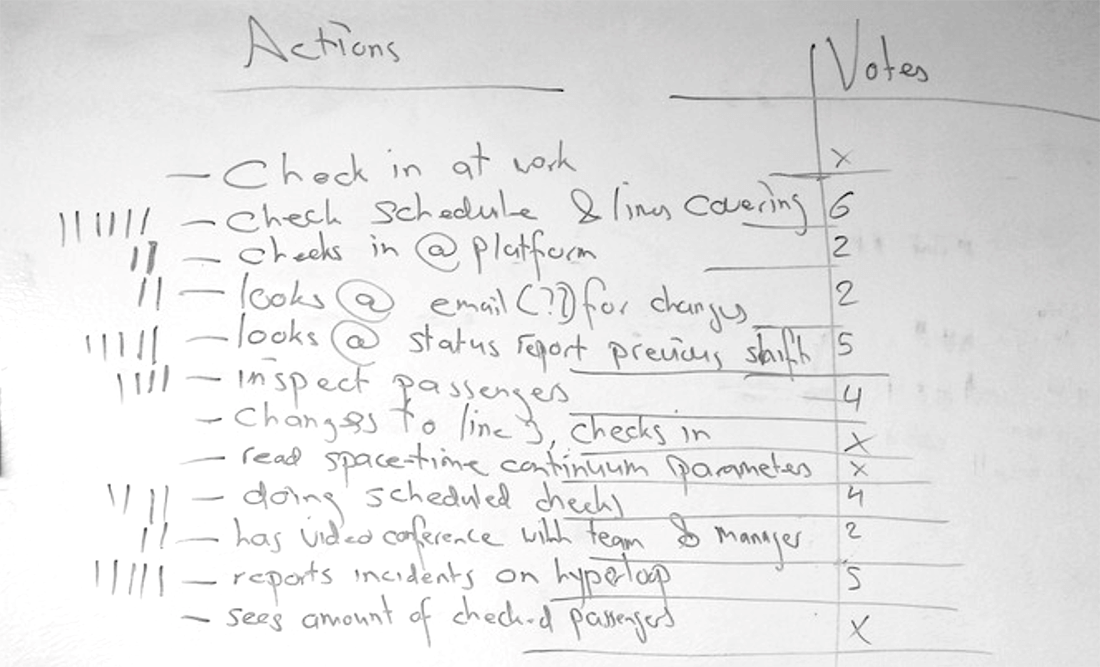 Actions Votes
– Check in at work x
|||||| – Check schedule & lines covering 6
|| – checks in @ platform 2
|| – looks @ email (??) for changes 2
||||| – looks @ status report previous shift 5
|||| – inspect passengers 4
– Changes to line 3, checks in x
– read space-time continuum parameters x
|||| – doing scheduled checks 4
|| – has video conference with team & manager 2
||||| – reports incidents on hyperloop 5
– sees amount of checked passengers x